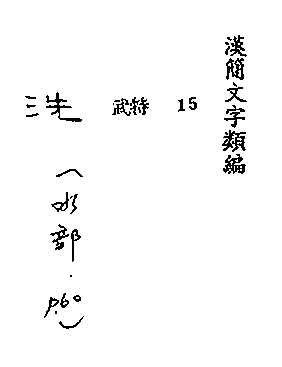 漢簡文字類編
洗 武特 15
(水部.p.60)